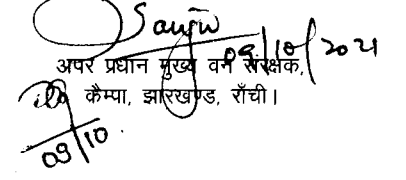 Sanjiv
09/10/2021
अपर प्रधान मुख्य वन संरक्षक,
कैम्पा, झारखण्ड, राँची।
09/10.